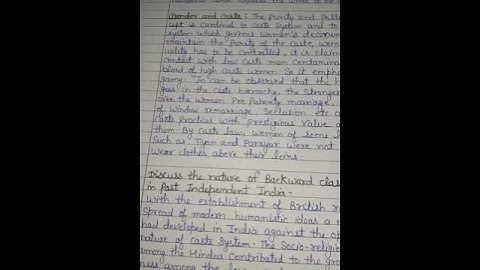 Gender and caste : The Purity and Poll
cept is cardinal to caste System and to
system which governs women's decorum
maintain the Purity of the caste, wom
uality has to be controlled, it is claim
contact with low caste men contamina
blood of high caste women. So it empha
gamy. In can be observed that the h
in the caste hierarchy, the Stronger
over the women. Pre Puberty marriage,
of window remarriage, Seclution etc a
caste Practices with Prestigious value a
them. By caste law, women of some l
Such as Tiyan and Parayar were not
wear clothes above their loins.
Discuss the nature of Backward clas
in Post Independent India.
With the establishment of British r
Spread of modern humanistic ideas a n
had developed in India against the op
nature of caste System. The Socio-religio
among the Hindus Contributed to the gro
ness among the